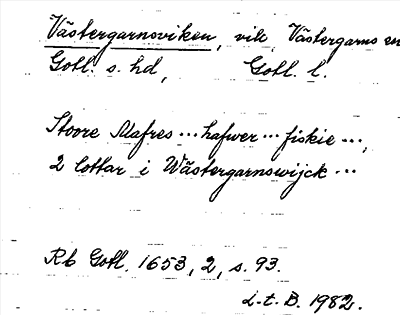 Västergarnsviken, vik, Västergarns sn
Gotl. s. hd, Gotl. l.
Stoore Mafres ... hafwer ... fiskie ...,
2 lottar i Wästergarnswijck ...
Rb Gotl. 1653, 2, s. 93.
L.t. B. 1982.